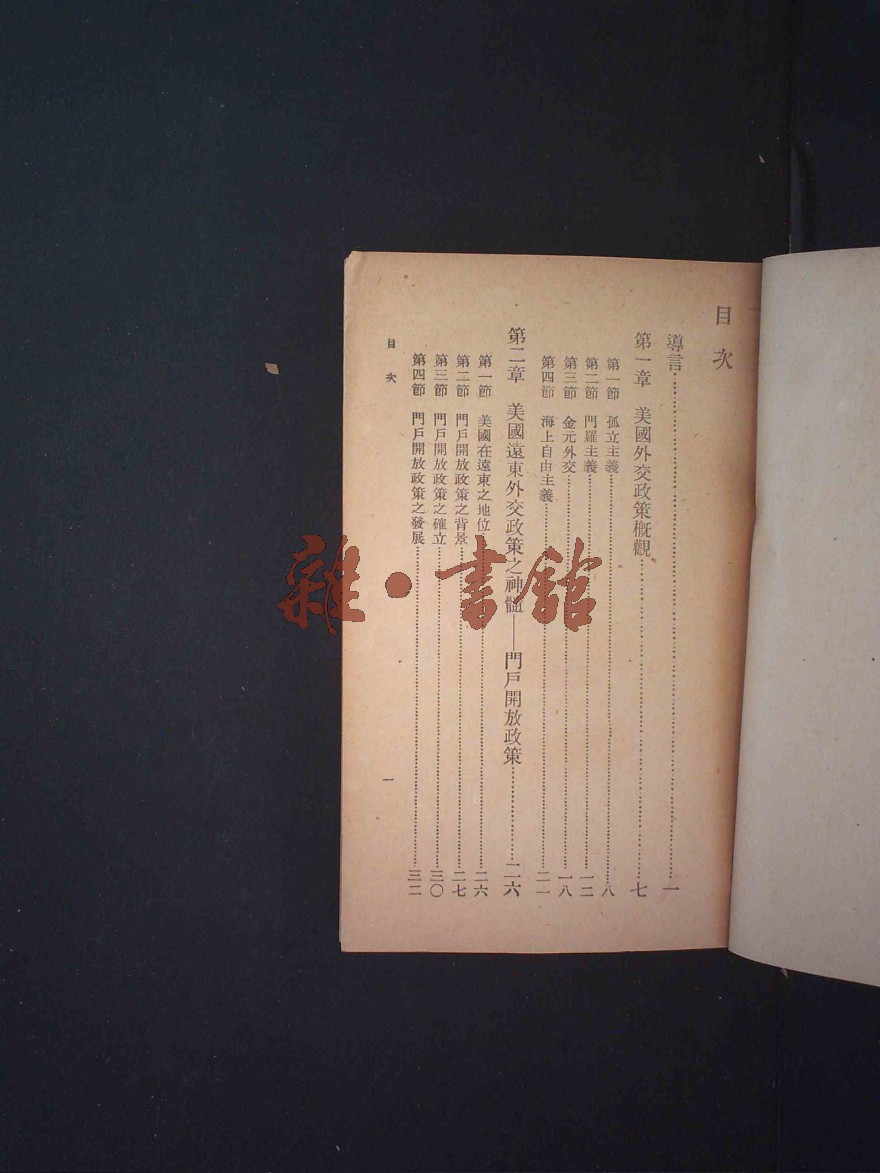 目次
導言……一
第一章 美國外交政策概觀……七
第一節 孤立主義……八
第二節 門羅主義……一二
第三節 金元外交……一八
第四節 海上自由主義……二一
第二章 美國遠東外交政策之神髓——門戶開放政策……二六
第一節 美國在遠東之地位……二六
第二節 門戶開放政策之背景……二七
第三節 門戶開放政策之確立……三〇
第四節 門戶開放政策之發展……三二
目次
一
雜·書館